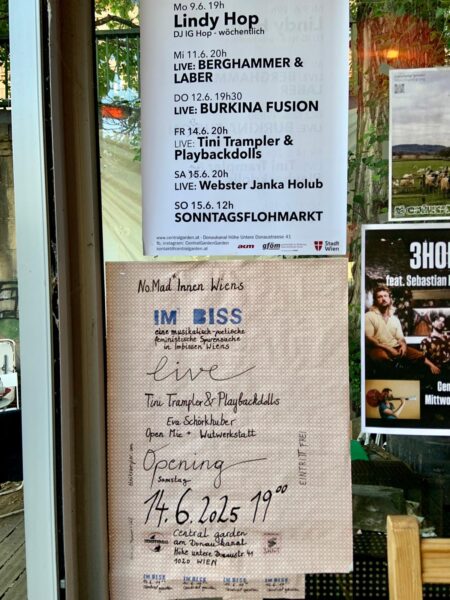 Mo 9.6. 19h
Lindy Hop
DJ IG Hop - wöchentlich
Mi 11.6. 20h
LIVE: BERGHAMMER &
LABER
DO 12.6. 19h30
LIVE: BURKINA FUSION
FR 14.6. 20h
LIVE: Tini Trampler &
Playbackdolls
SA 15.6. 20h
LIVE: Webster Janka Holub
SO 15.6. 12h
SONNTAGSFLOHMARKT
www.centralgarden.at - Donaukanal Höhe Untere Donaustrasse 41
fb, instagram: CentralGardenGarden
kontakt@centralgarden.at
akm
gföm
Stadt
Wien
NoMad*Innen Wiens
IM BISS
eine musikalisch-poetische
feministische Spurensuche
in Imbissen Wiens
live
Tini Trampler & Playbackdolls
Eva Schörkhuber
Open Mic + Wutwerkstatt
Opening
Samstag
14.6.2025 19⁰⁰
Central garden
am Donaukanal
Höhe untere Donaustr. 41
1020 WIEN
EINTRITT FREI
IM BISS
IM BISS
IM BISS
IM BISS
3HO
feat. Sebastian
Cen
Mittwo